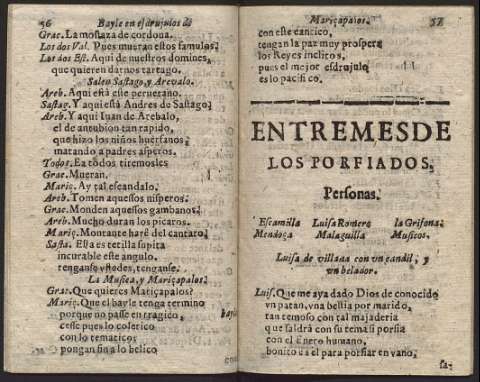 56 Bayle en esdrujulos de
Grac. La mostaza de cordoua.
Los dos Val. Pues mueran estos famulos.
Los dos Est. Aqui de nuestros domines,
que quieren darnos tartago.
Salen Sastago, y Arevalo.
Areb. Aqui està este peruetano.
Sastag. Y aqui està Andres de Sastago;
Areb. Y aqui Iuan de Arebalo,
el de antubion tan rapido,
que hizo los niños huerfanos,
matando a padres asperos.
Todos. Ea todos tiremosles
Grac. Mueran.
Mariç. Ay tal escandalo.
Areb. Tomen aquestos nisperos.
Grac. Monden aquestos gambanos.
Areb. Mucho duran los picaros.
Mariç. Montante harè del cantaro.
Sasta. Esta es tetilla supita
incurable este angulo.
tenganse vstedes, tenganse.
La Musica, y Mariçapalos.
Grac. Que quieres Mariçapalos?
Mariç. Que el bayle tenga termino
porque no passe en tragico,
cesse pues lo colerico
con lo tematico;
pongan fin a lo belico
con
Mariçapalos. 57
con este cantico,
tengan la paz muy prospera
los Reyes inclitos,
pues el mejor esdrujulo
es lo pacifico.
ENTREMES DE
LOS PORFIADOS.
Personas.
Escamilla Luisa Romero la Grifona.
Mendoça Malaguilla Musicos.
Luisa de villana con vn candil, y
vn belador.
Luis. Que me aya dado Dios de conocido
vn patan, vna bestia por marido,
tan temoso con tal majaderia
que saldrà con su tema si porfia
con el Enero humano,
bonito es el para porfiar en vano,